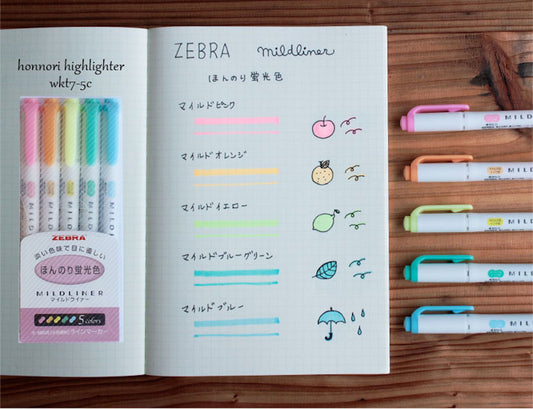 honnori highlighter
wkt7-5c
ZEBRA
濃い色味で目に優しい
ほんのり蛍光色
MILDLINER
マイルドライナー
5 colors
ラインマーカー
ZEBRA mildliner
ほんのり蛍光色
マイルドピンク
マイルドオレンジ
マイルドイエロー
マイルドブルーグリーン
マイルドブルー
MILDL
MILDL
MILDL
MILDL
MILDL